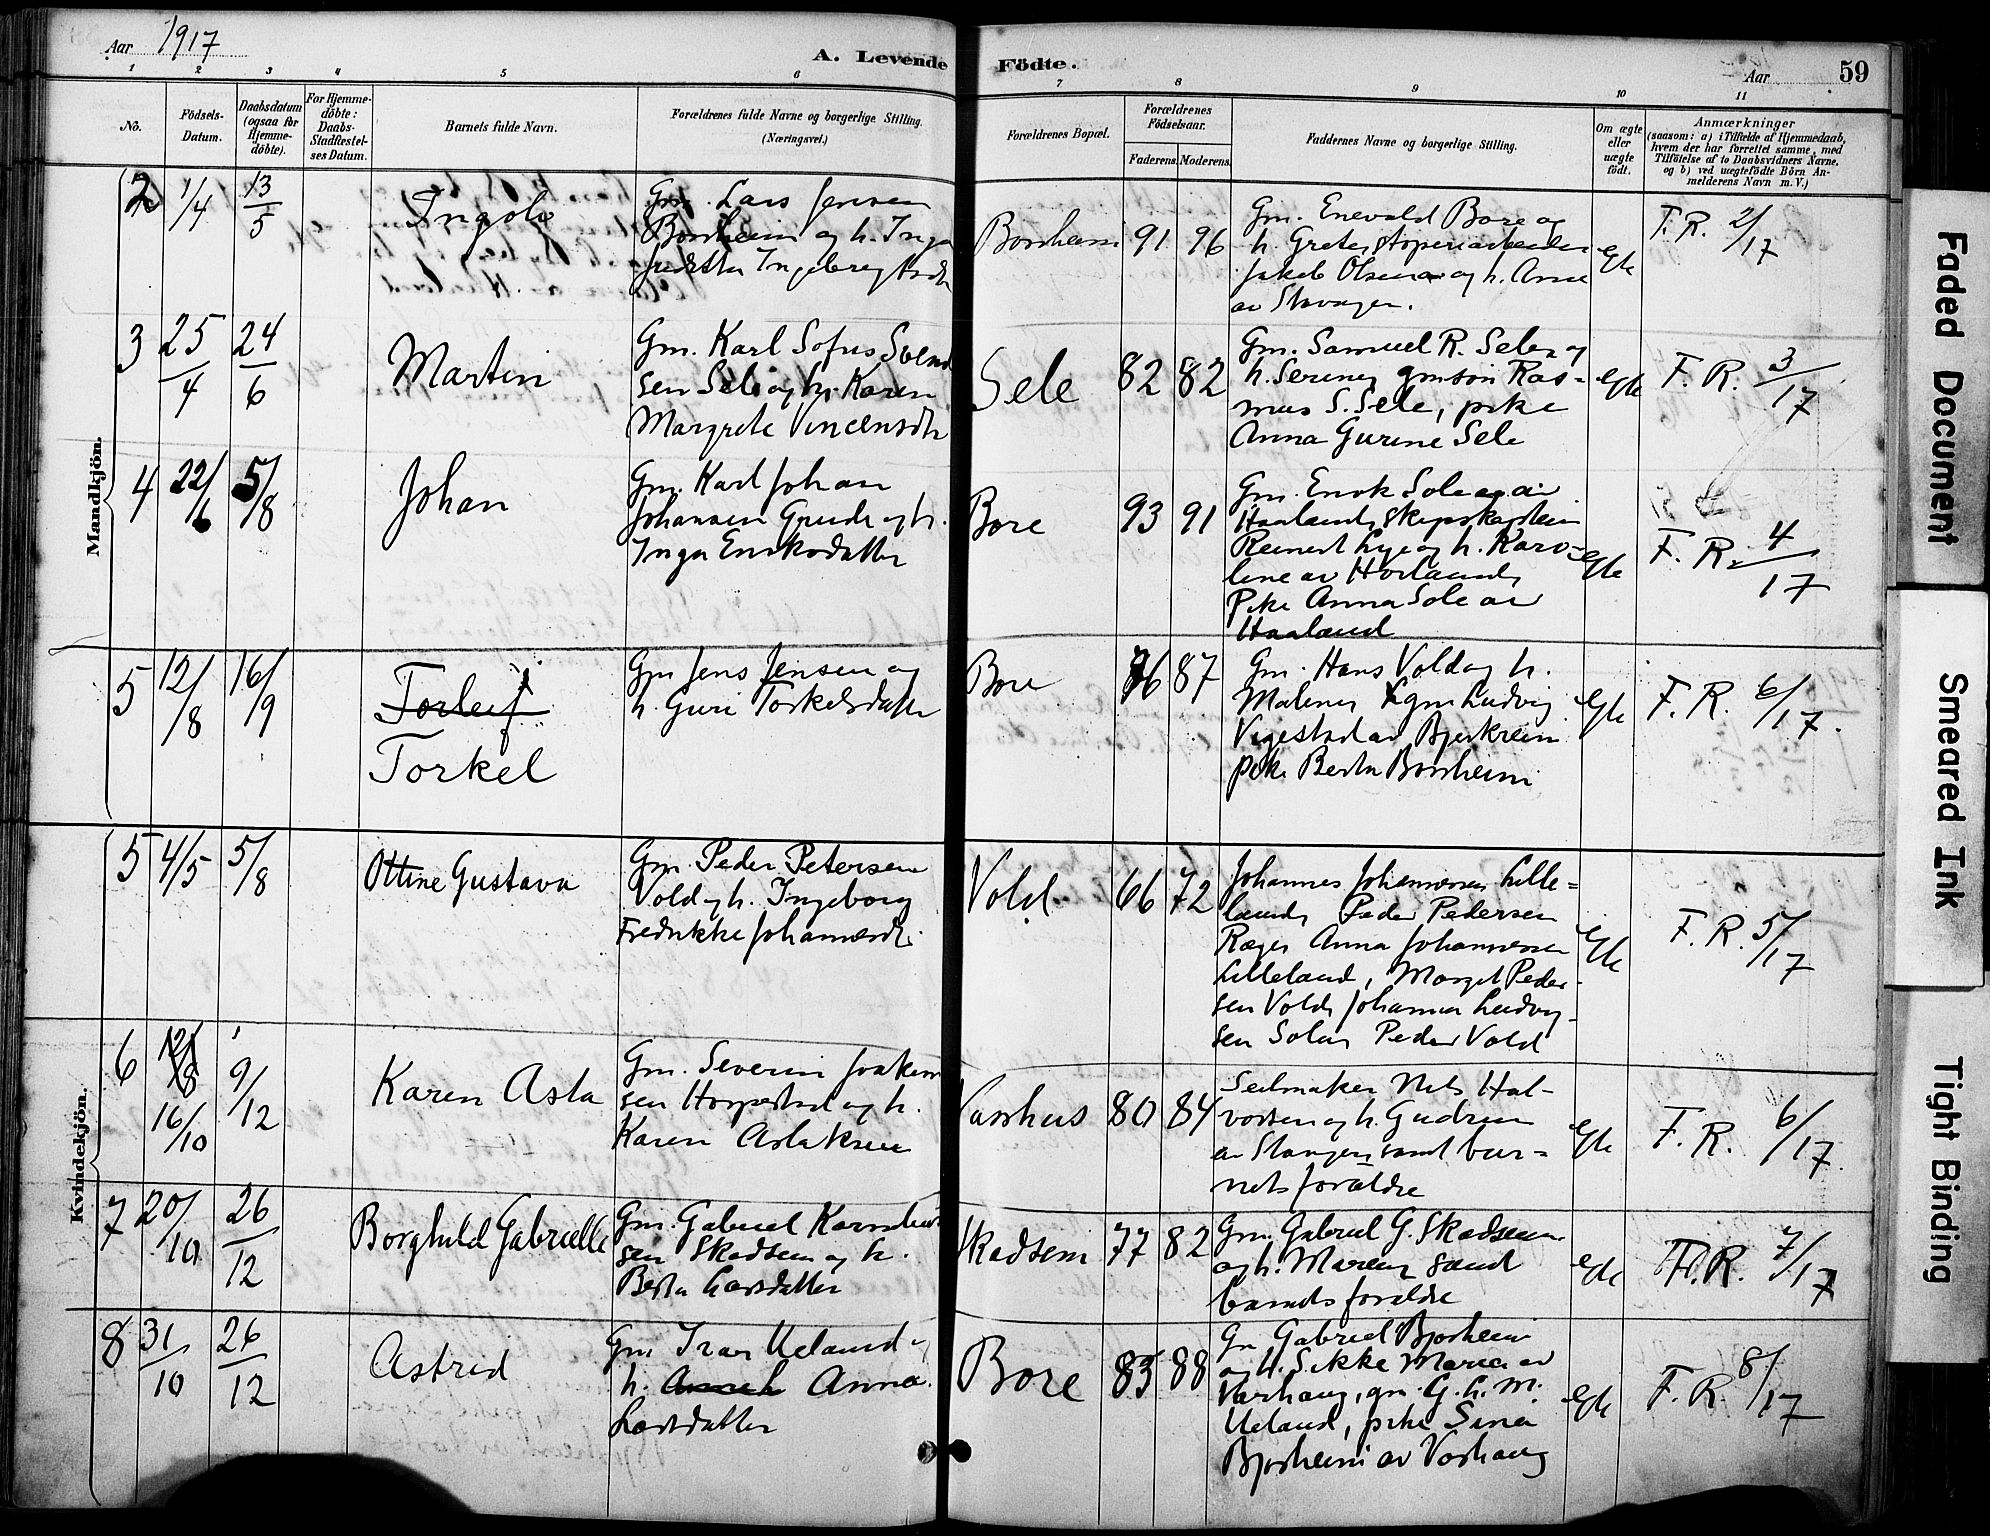 Aar 1917
A. Levende Födte.
Aar 59
1 2 3 4 5 6 7 8 9 10 11
No.
Födsels-
Datum.
Daabsdatum
(ogsaa for
Hjemme-
döbte).
For Hjemme-
döbte:
Daabs-
Stadfæstel-
ses Datum.
Barnets fulde Navn.
Forældrenes fulde Navne og borgerlige Stilling.
(Næringsvei.)
Forældrenes Bopæl.
Forældrenes
Födselsaar.
Faderens. Moderens.
Faddernes Navne og borgerlige Stilling.
Om ægte
eller
uægte
födt.
Anmærkninger
(saasom: a) i Tilfælde af Hjemmedaab,
hvem der har forrettet samme, med
Tilföielse af to Daabsvidners Navne.
og b) ved uægtefödte Börn An-
melderens Navn m. V.)
Mandkjön.
2 1/4 13/5
Gm. Lars Jensen
Borsheim og h. Inga
Borsheim 91 96
Gm. Enevald Bore og
h. Grete,
Jakob Olsen og h. Anne
av Stavanger.
Egte
F. R. 2/17
3 25/4 24/6
Martin
Gm. Karl Sofus Svend
sen Sele og h. Karen
Margrete Vincensdtr
Sele 82 82
Gm. Samuel R. Sele og
h. Serine, gmsön Ras-
mus S. Sele, pike
Anna Gurine Sele
Egte
F. R. 3/17
4 22/6 5/8
Johan
Gm. Karl Johan
Johansen Grude og h.
Inga Enoksdatter
Bore 93 91
Gm. Enok Sole av
Haaland, skipskaptein
Reinert Lye og h. Karo-
line av Haaland,
Pike Anna Sole av
Haaland
Egte
F. R. 4/17
5 12/8 16/9
Torleif
Torkel
Gm Jens Jensen og
h. Guri Torkelsdatter
Bore 86 87
Gm. Hans Vold og h.
Malene, gm Ludvig
Vigestad av Bjerkreim
pike Berta Borsheim
Egte
F. R. 6/17.
Kvindekjön.
5 4/5 5/8
Ottine Gustava
Gm. Peder Petersen
Vold og h. Ingeborg
Fredrikke Johannesdtr.
Vold 66 72
Johannes Johannessen Lille=
land, Peder Pedersen
Ræge, Anna Johannessen
Lilleland, Margit Peder-
sen Vold, Johanna Ludvig-
sen Sola, Peder Vold
Egte
F. R. 5/17
6 12/8 9/12
16/10
Karen Asta
Gm. Severin Joakim
sen Horpestad og h.
Karen Aslaksen
Vasshus 80 84
Seilmaker Nils Hal-
vorsen og h. Gudrun
av Stavanger samt bar=
nets forældre
Egte
F. R. 6/17.
7 20/10 26/12
Borghild Gabrielle
Gm. Gabriel Kornelius
sen Skadsem og h.
Berta Larsdatter
Skadsem 77 82
Gm. Gabriel G. Skadsem
og h. Maren, samt
barnets forældre
Egte
F. R. 7/17
8 31/10 26/12
Astrid
Gm Ivar Ueland og
h. Anna
Larsdatter
Bore 83 88
Gm Gabriel Bjorheim
og h. Sikke Maria av
Varhaug, gm. G. L. M.
Ueland, pike Sina
Bjorheim av Varhaug
Egte
F. R. 8/17
Faded Document
Smeared Ink
Tight Binding